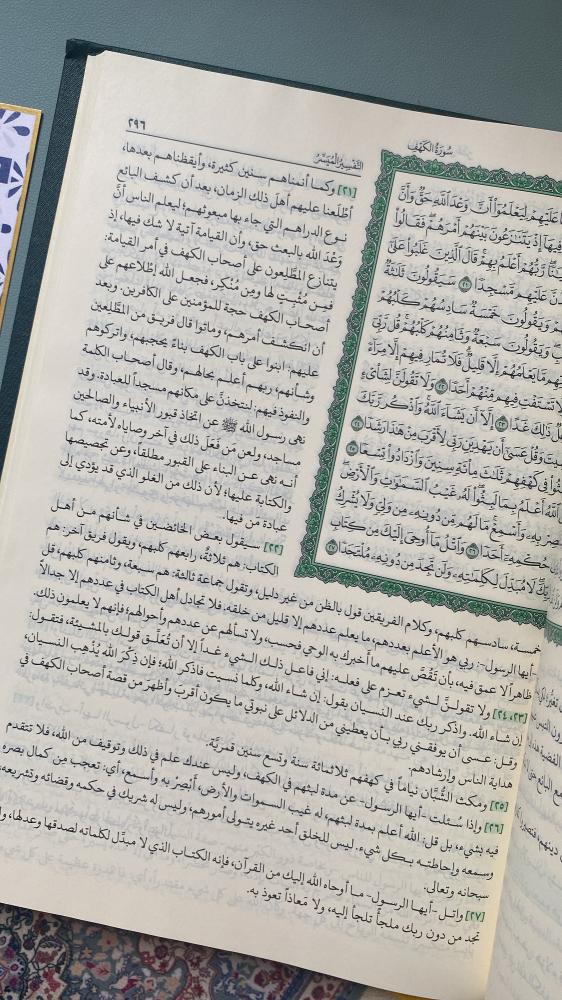 سُورَةُ الكَهْفِ
التَّفْسِيرُ الْمُيَسَّرُ
٢٩٦
عَلَيْهِمْ لِيَعْلَمُوٓا۟ أَنَّ وَعْدَ ٱللَّهِ حَقٌّ وَأَنَّ
فِيهَآ إِذْ يَتَنَٰزَعُونَ بَيْنَهُمْ أَمْرَهُمْ فَقَالُوا۟
رَّبُّهُمْ أَعْلَمُ بِهِمْ قَالَ ٱلَّذِينَ غَلَبُوا۟ عَلَىٰٓ
عَلَيْهِم مَّسْجِدًا ٢١ سَيَقُولُونَ ثَلَٰثَةٌ
وَيَقُولُونَ خَمْسَةٌ سَادِسُهُمْ كَلْبُهُمْ
وَيَقُولُونَ سَبْعَةٌ وَثَامِنُهُمْ كَلْبُهُمْ قُل رَّبِّىٓ
مَّا يَعْلَمُهُمْ إِلَّا قَلِيلٌ فَلَا تُمَارِ فِيهِمْ إِلَّا مِرَآءً
تَسْتَفْتِ فِيهِم مِّنْهُمْ أَحَدًا ٢٢ وَلَا تَقُولَنَّ لِشَا۟ىْءٍ
ذَٰلِكَ غَدًا ٢٣ إِلَّآ أَن يَشَآءَ ٱللَّهُ وَٱذْكُر رَّبَّكَ
وَقُلْ عَسَىٰٓ أَن يَهْدِيَنِ رَبِّى لِأَقْرَبَ مِنْ هَٰذَا رَشَدًا ٢٤
فِى كَهْفِهِمْ ثَلَٰثَ مِا۟ئَةٍ سِنِينَ وَٱزْدَادُوا۟ تِسْعًا ٢٥
ٱللَّهُ أَعْلَمُ بِمَا لَبِثُوا۟ لَهُۥ غَيْبُ ٱلسَّمَٰوَٰتِ وَٱلْأَرْضِ
بِهِۦ وَأَسْمِعْ مَا لَهُم مِّن دُونِهِۦ مِن وَلِىٍّ وَلَا يُشْرِكُ
حُكْمِهِۦٓ أَحَدًا ٢٦ وَٱتْلُ مَآ أُوحِىَ إِلَيْكَ مِن كِتَابِ
لَا مُبَدِّلَ لِكَلِمَٰتِهِۦ وَلَن تَجِدَ مِن دُونِهِۦ مُلْتَحَدًا ٢٧
[٢١] وكما أنمناهم سنين كثيرة، وأيقظناهم بعدها،
أطْلَعنا عليهم أهل ذلك الزمان، بعد أن كشف البائع
نوع الدراهم التي جاء بها مبعوثهم؛ ليعلم الناس أنَّ
وَعْدَ الله بالبعث حق، وأن القيامة آتية لا شك فيها، إذ
يتنازع المطَّلِعون على أصحاب الكهف في أمر القيامة:
فمِن مُثْبِتٍ لها ومِن مُنْكِر؛ فجعل الله إطْلاعهم على
أصحاب الكهف حجة للمؤمنين على الكافرين. وبعد
أن انكشف أمرهم، وماتوا قال فريق من المطَّلِعين
عليهم: ابنوا على باب الكهف بناءً يحجبهم، واتركوهم
وشأنهم، ربهم أعلم بحالهم، وقال أصحاب الكلمة
والنفوذ فيهم: لنتخذنَّ على مكانهم مسجداً للعبادة. وقد
نهى رسول الله ﷺ عن اتخاذ قبور الأنبياء والصالحين
مساجد، ولعن مَن فَعَلَ ذلك في آخر وصاياه لأمته، كما
أنه نهى عن البناء على القبور مطلقاً، وعن تجصيصها
والكتابة عليها؛ لأن ذلك من الغلو الذي قد يؤدي إلى
عبادة من فيها.
[٢٢] سيقول بعض الخائضين في شأنهم من أهل
الكتاب: هم ثلاثةٌ، رابعهم كلبهم، ويقول فريق آخر: هم
خمسة، سادسهم كلبهم، وكلام الفريقين قول بالظن من غير دليل، وتقول جماعة ثالثة: هم سبعة، وثامنهم كلبهم، قل
-أيها الرسول-: ربي هو الأعلم بعددهم، ما يعلم عددهم إلا قليل من خلقه. فلا تجادل أهل الكتاب في عددهم إلا جدالاً
ظاهراً لا عمق فيه، بأن تَقُصَّ عليهم ما أخبرك به الوحي فحسب، ولا تسألهم عن عددهم وأحوالهم؛ فإنهم لا يعلمون ذلك.
[٢٣، ٢٤] ولا تقولنَّ لشيء تعزم على فعله: إني فاعل ذلك الشيء غداً إلا أن تُعَلِّق قولك بالمشيئة، فتقول:
إن شاء الله. واذكر ربك عند النسيان بقول: إن شاء الله، وكلما نسيت فاذكر الله؛ فإن ذِكْرَ الله يُذْهِب النسيان،
وقل: عسى أن يوفقني ربي بأن يعطيني من الدلائل على نبوتي ما يكون أقربَ وأظهرَ من قصة أصحاب الكهف في
هداية الناس وإرشادهم.
[٢٥] ومكث الشُّبَّان نياماً في كهفهم ثلاثمائة سنة وتسع سنين قمريَّة.
[٢٦] وإذا سُئلت -أيها الرسول- عن مدة لبثهم في الكهف، وليس عندك علم في ذلك وتوقيف من الله، فلا تتقدم
فيه بشيء، بل قل: الله أعلم بمدة لبثهم، له غيب السموات والأرض، أبْصِرْ به وأسمع، أي: تعجب مِن كمال بصره
وسمعه وإحاطته بكل شيء. ليس للخلق أحد غيره يتولى أمورهم، وليس له شريك في حكمه وقضائه وتشريعه،
سبحانه وتعالى.
[٢٧] واتل -أيها الرسول- ما أوحاه الله إليك من القرآن، فإنه الكتاب الذي لا مبدِّل لكلماته لصدقها وعدلها،
تجد من دون ربك ملجأً تلجأ إليه، ولا مَعاذاً تعوذ به.